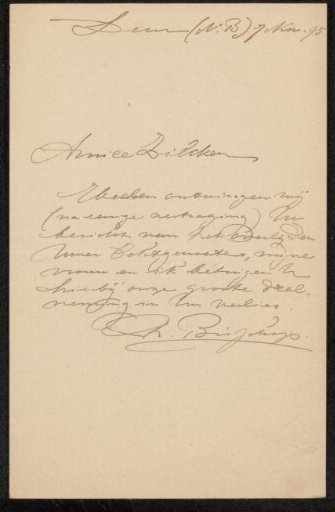 Deurne (N.B) 9 Nov. 95
Amice Zilcken
Heden ontvingen wij
(na eenige vertraging) Uw
bericht van het overlijden
Uwer Echtgenoote, mijne
vrouw en ik betuigen U
hierbij onze groote deel-
neming in Uw verlies